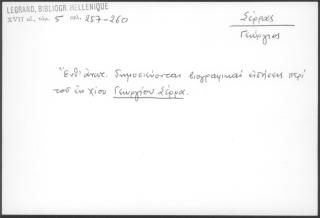 LEGRAND, BIBLIOGR. HELLENIQUE
XVII αἰ. τόμ. 5 σελ. 257-260
Σέρρας
Γεώργιος
Ἔνθ' ἀνωτ. δημοσιεύονται βιογραφικαὶ εἰδήσεις περὶ
τοῦ ἐκ Χίου Γεωργίου Σέρρα.